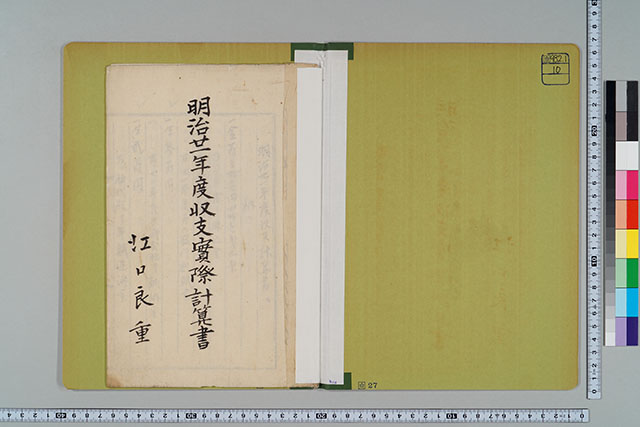 明治廿一年度収支實際計算書
江口良重
10
27